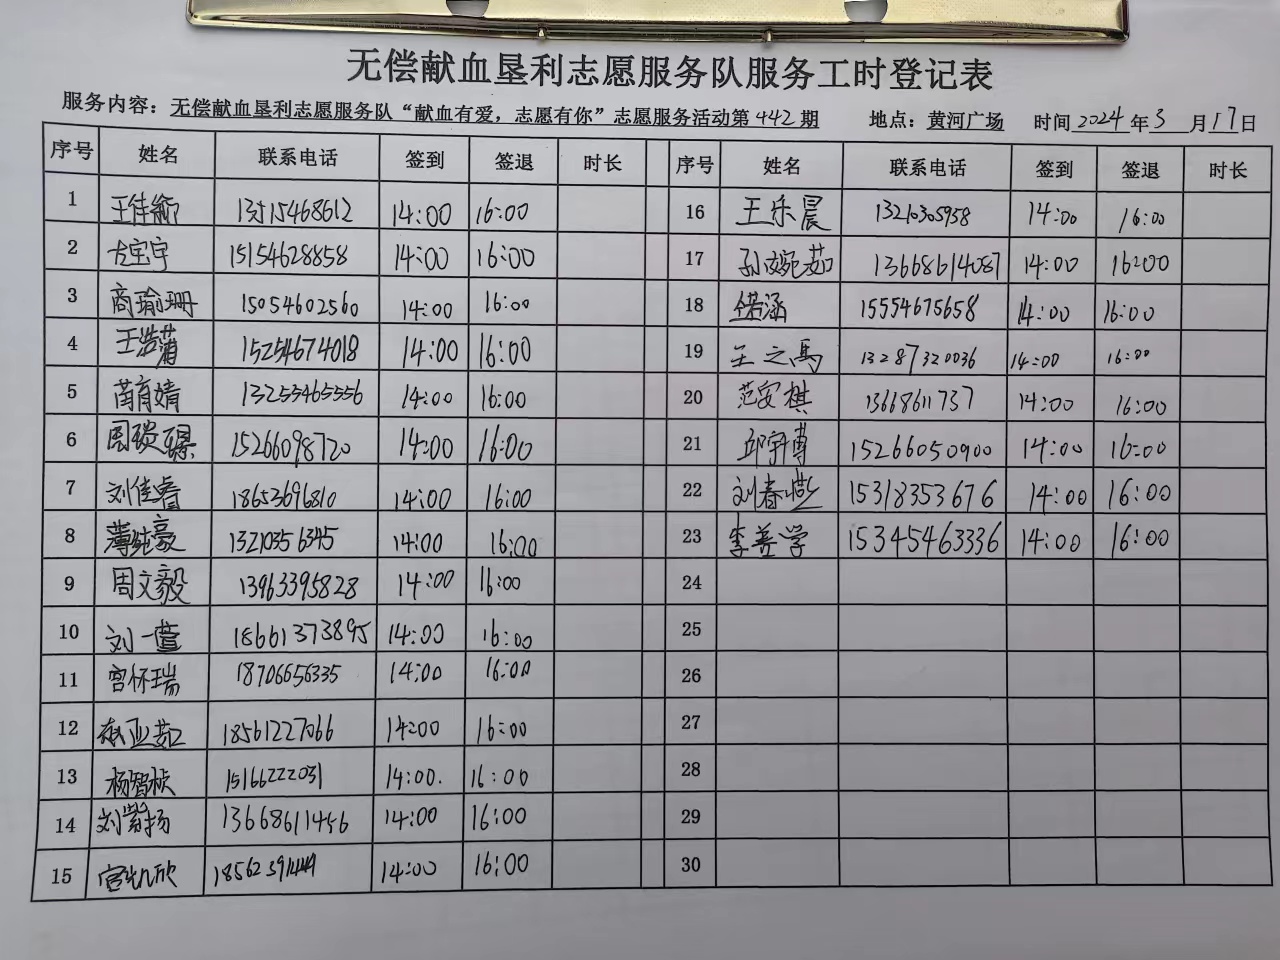 无偿献血垦利志愿服务队服务工时登记表
服务内容：无偿献血垦利志愿服务队“献血有爱，志愿有你”志愿服务活动第442期 地点：黄河广场 时间2024年3月17日
序号 姓名 联系电话 签到 签退 时长 序号 姓名 联系电话 签到 签退 时长
1 13515468612 14:00 16:00 16 王乐晨 13210305958 14:00 16:00
2 15154628858 14:00 16:00 17 孙婉茹 13668614087 14:00 16:00
3 商瑜珊 15054602560 14:00 16:00 18 15554675658 14:00 16:00
4 王浩蒲 15254674018 14:00 16:00 19 王之禹 13287320036 14:00 16:00
5 苘育婧 13255465556 14:00 16:00 20 范安棋 13668611737 14:00 16:00
6 15266098720 14:00 16:00 21 邱宇博 15266050900 14:00 16:00
7 刘佳睿 18653696810 14:00 16:00 22 刘春燕 15318353676 14:00 16:00
8 薄纯豪 13210356345 14:00 16:00 23 李善学 15345463336 14:00 16:00
9 周文毅 13963395828 14:00 16:00 24
10 刘一萱 18661373895 14:00 16:00 25
11 宫怀瑞 18706656335 14:00 16:00 26
12 18561227066 14:00 16:00 27
13 杨智桢 15166222031 14:00. 16:00 28
14 刘紫扬 13668611456 14:00 16:00 29
15 14:00 16:00 30